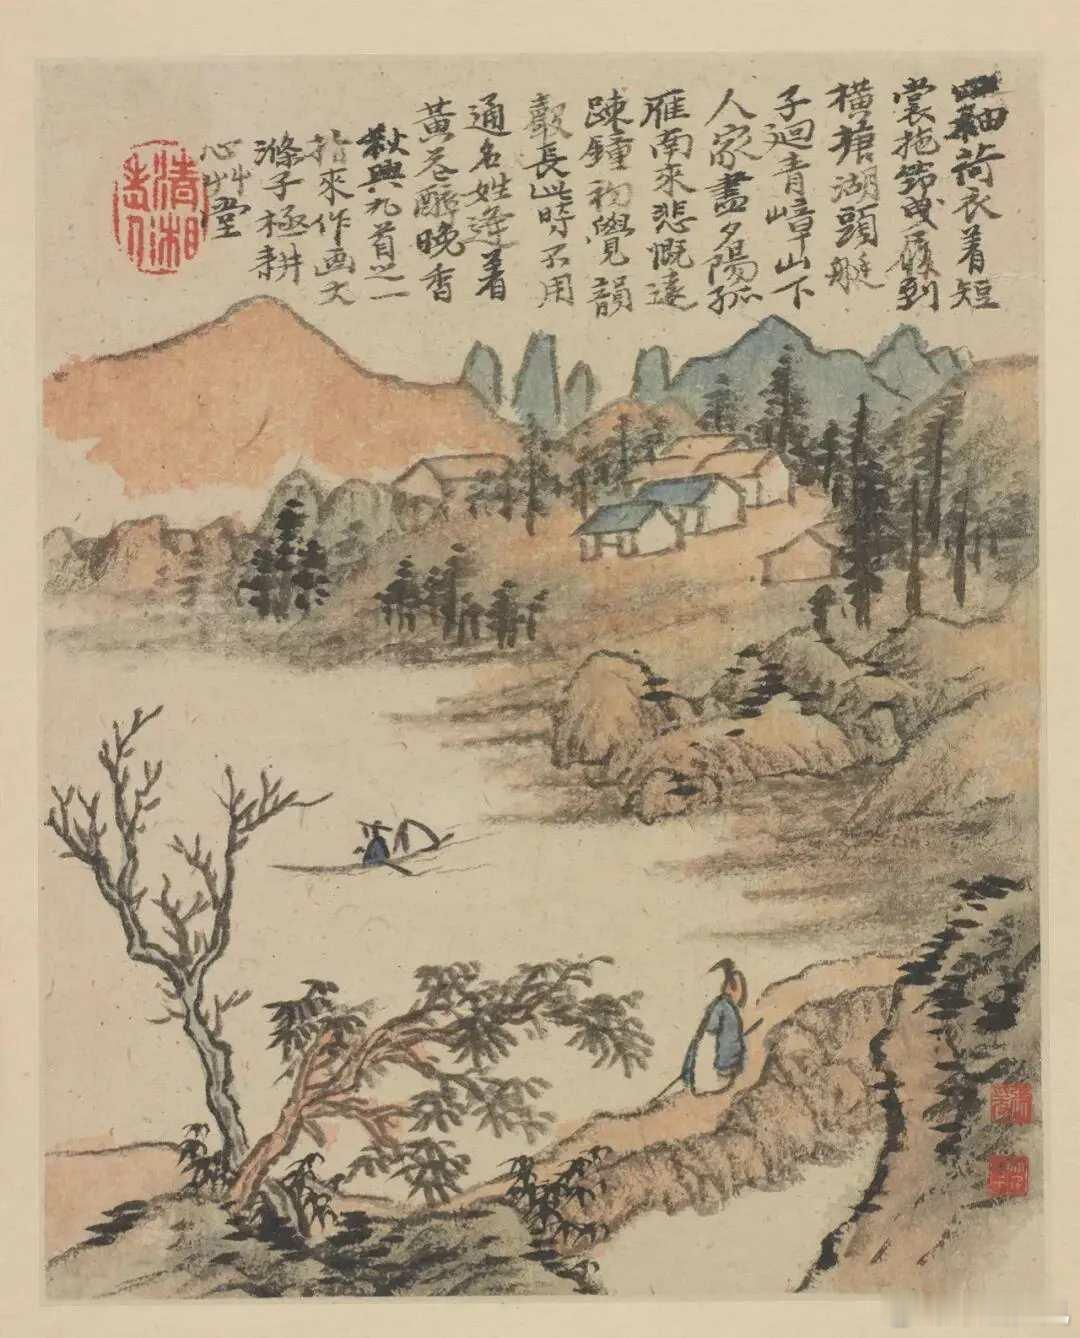 荷衣着短
裳拖筇曳履到
橫塘湖頭艇
子迴青嶂山下
人家盡夕陽孤
雁南來悲慨遠
踈鐘初覺韻
聲長此時不用
通名姓逢着
黃花醉晚香
秋興九首之一
拈來作画大
滌子極耕
心艸堂
清湘老人